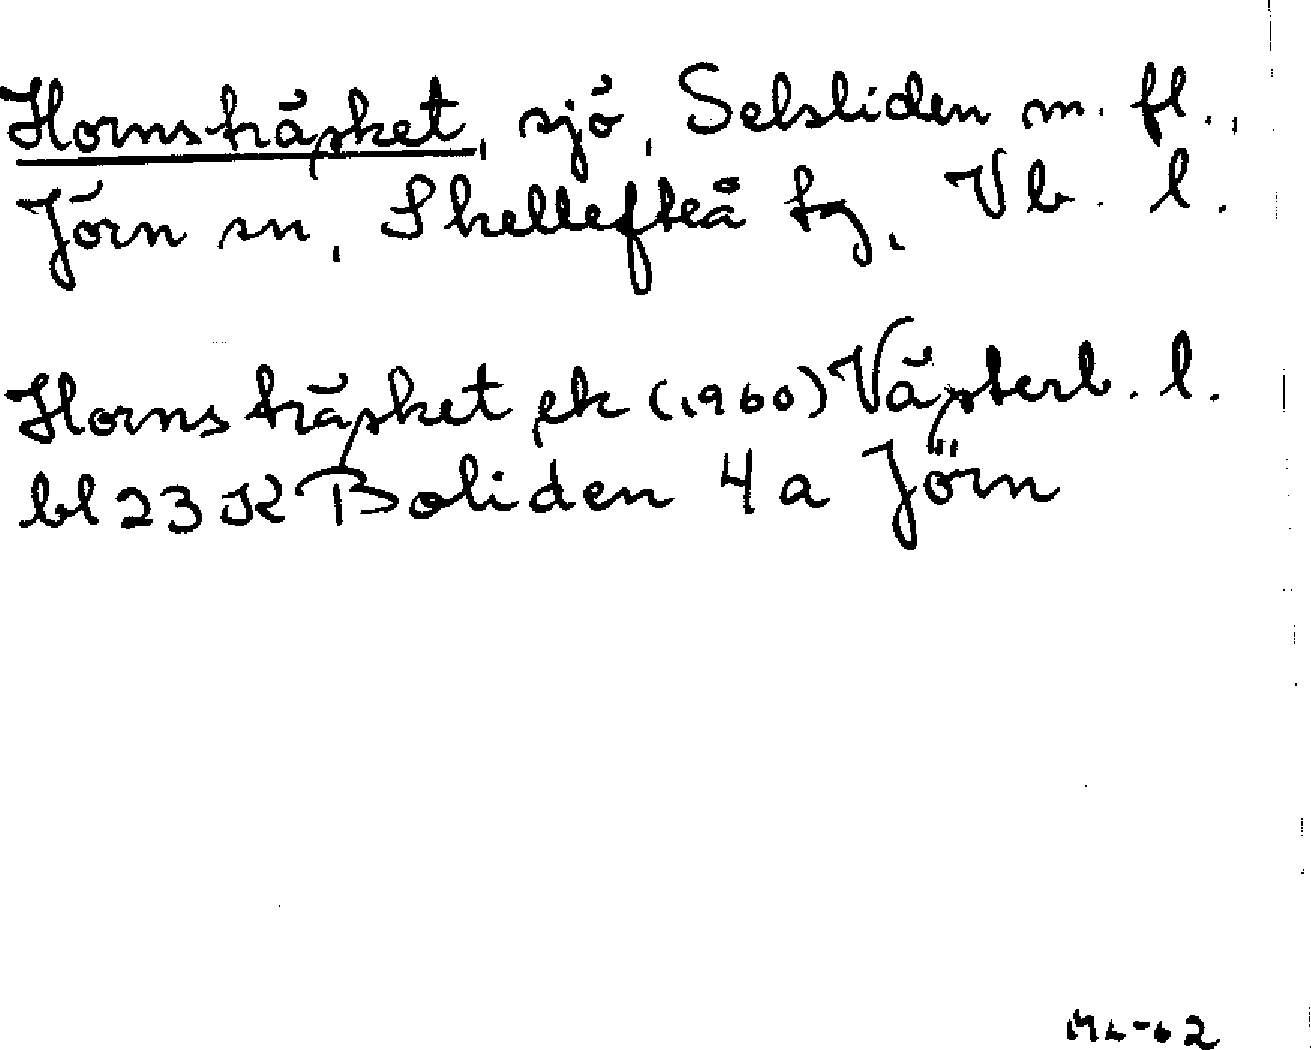 Hornsträsket, sjö, Selsliden m. fl.,
Jörn sn, Skellefteå tg, Vb. l.
Hornsträsket ek (1960) Västerb. l.
bl 23 K Boliden 4 a Jörn